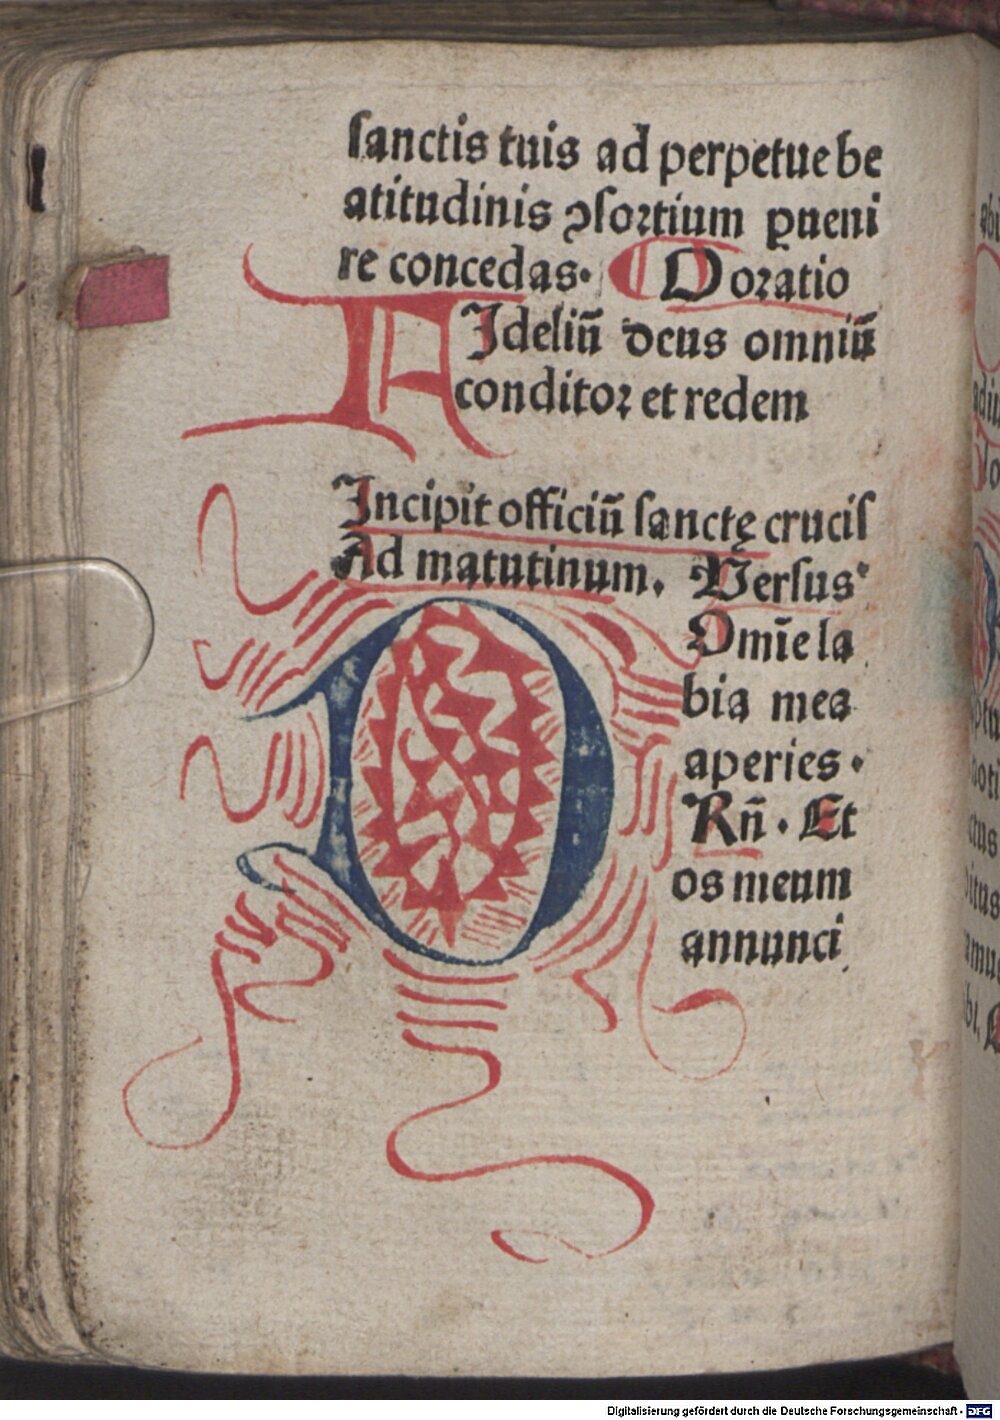 sanctis tuis ad perpetue be
atitudinis ↄsortium ꝑueni
re concedas. Oratio
FIdeliū deus omniū
conditor et redem
Incipit officiū sanctę crucis
Ad matutinum. Versus
DOmīe la
bia mea
aperies.
Rn̄. Et
os meum
annunci
Digitalisierung gefördert durch die Deutsche Forschungsgemeinschaft - DFG